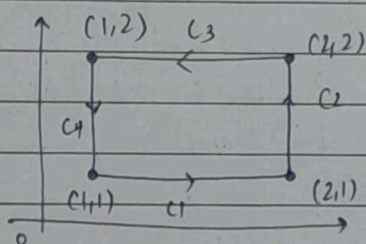 (1,2) C3 (2,2)
C2
C4
(1,1) C1 (2,1)
0